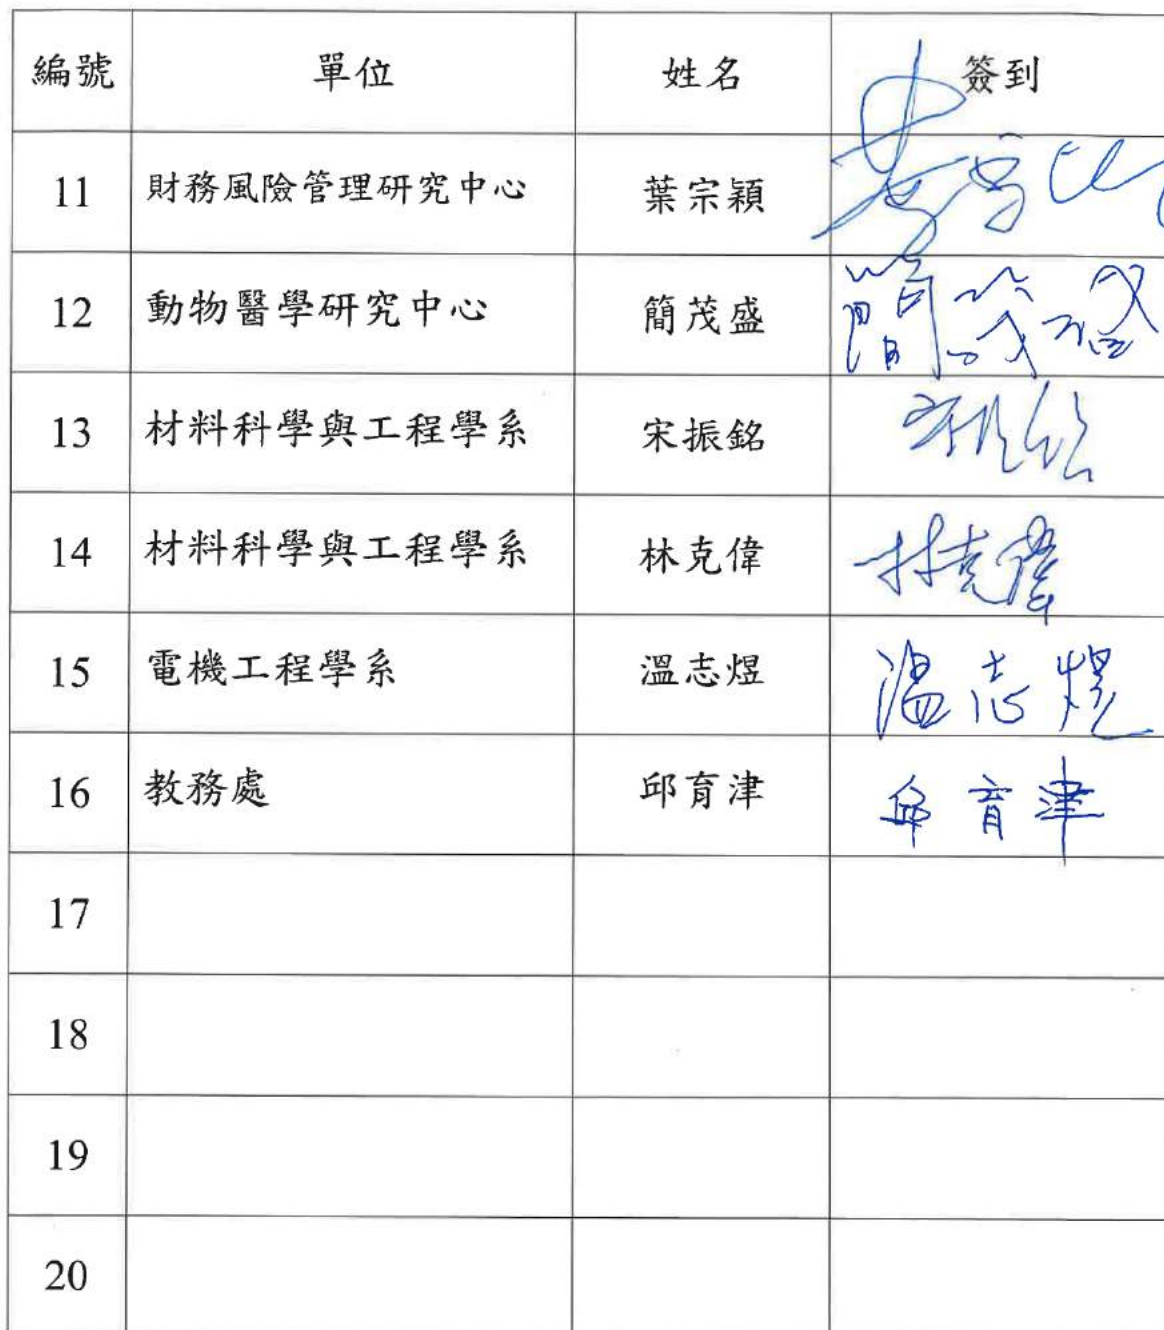 編號 單位 姓名 簽到
11 財務風險管理研究中心 葉宗穎
12 動物醫學研究中心 簡茂盛 簡茂盛
13 材料科學與工程學系 宋振銘
14 材料科學與工程學系 林克偉 林克偉
15 電機工程學系 溫志煜 溫志煜
16 教務處 邱育津 邱育津
17
18
19
20